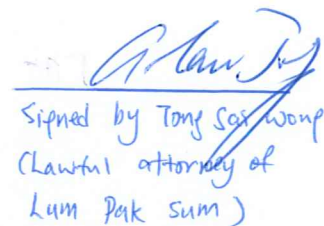 Signed by Tong Sai Wong
(Lawful attorney of
Lum Pak Sum)